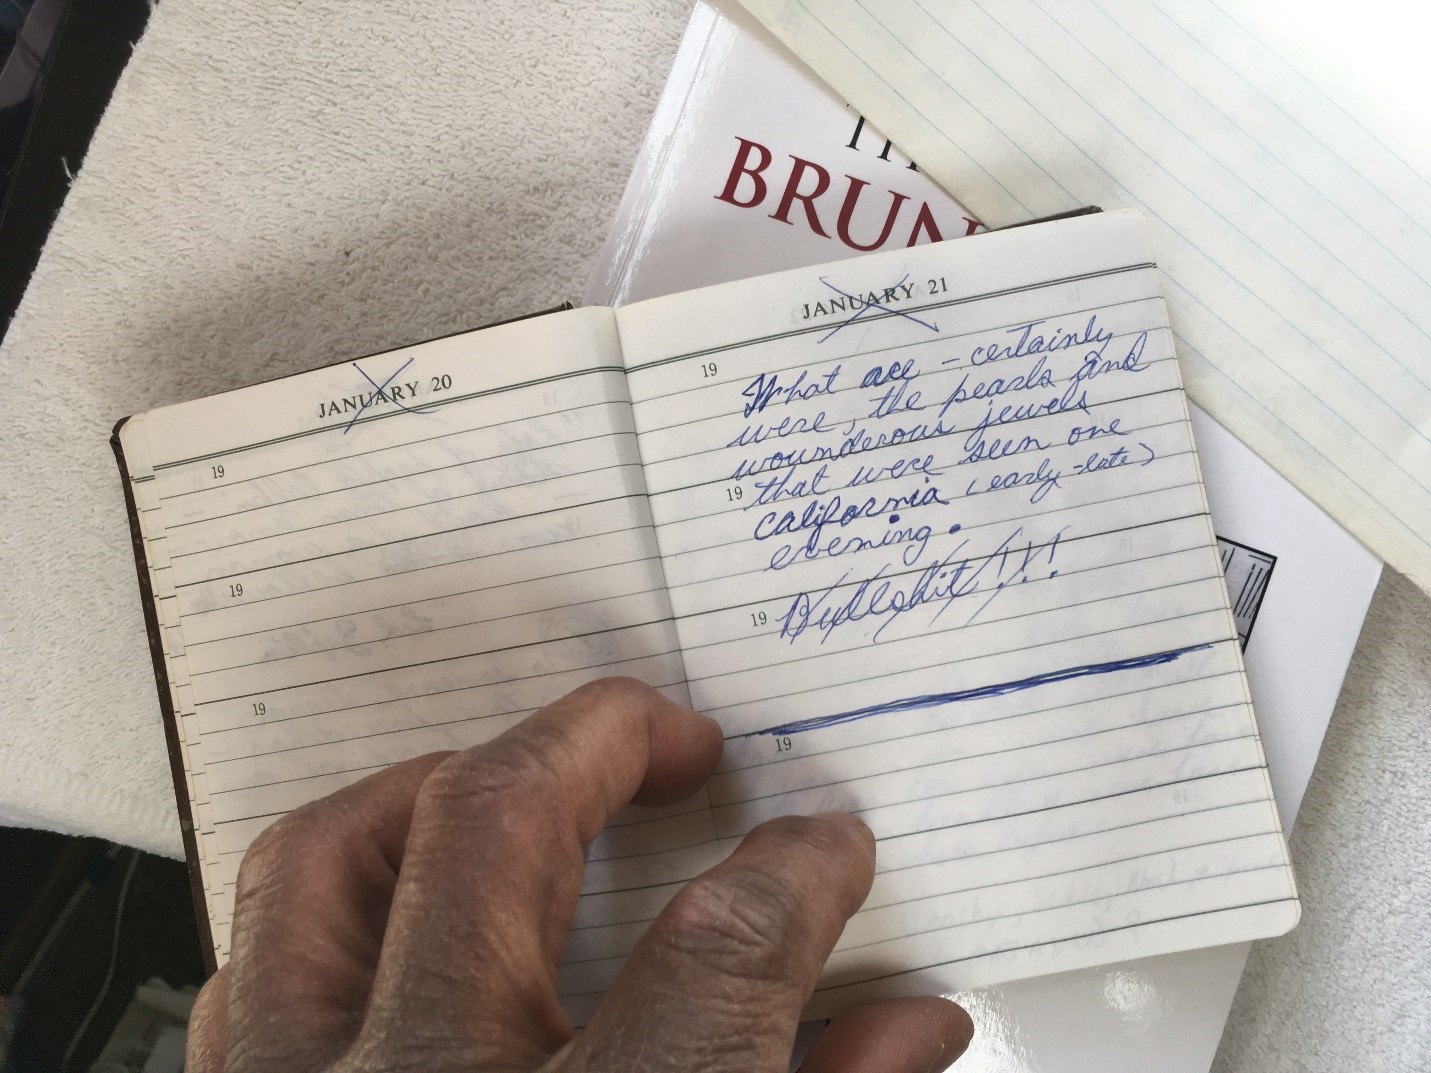 BRUN
JANUARY 20
19
19
19
JANUARY 21
19
What are - certainly
were, the pearls and
wounderous jewels
that were seen one
19
california (early-late)
evening.
Bullshit!!!
19
19